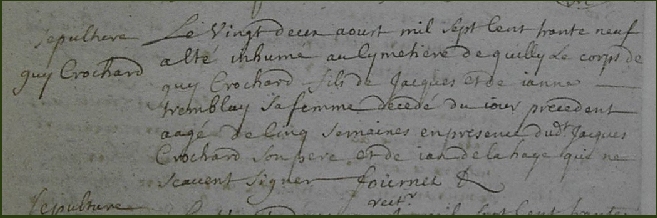 sepulture
guy Crochard
Le Vingt deux aoust mil sept Cent trante neuf
a esté inhumé au Cymetiere de quilly Le corps de
guy Crochard fils de Jacques et de ianne
tremblay sa femme decedé du iour precedent
aagé de Cinq semaines en presence dudt Jacques
Crochard son pere et de ian de la haye qui ne
scavent signer fournet
rectr
sepulture